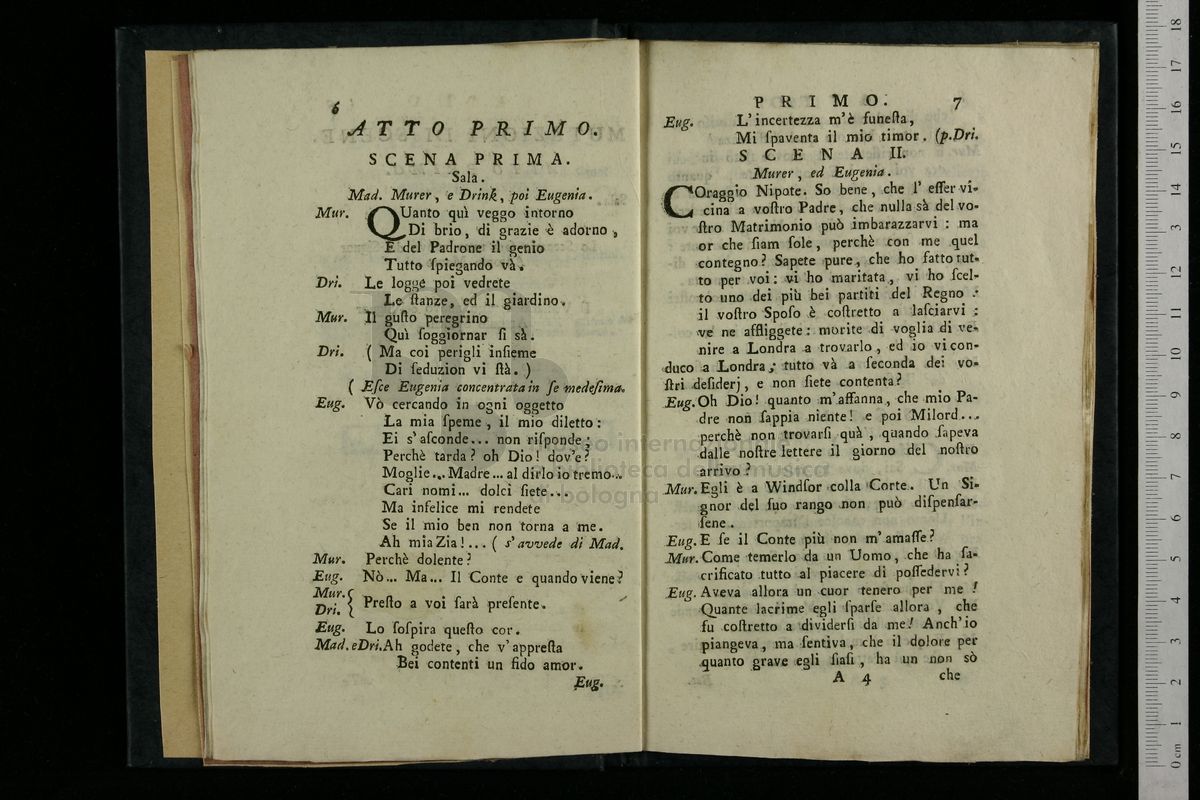 6
ATTO PRIMO.
SCENA PRIMA.
Sala.
Mad. Murer, e Drink, poi Eugenia.
Mur. QUanto quì veggo intorno
Di brio, di grazie è adorno,
E del Padrone il genio
Tutto ſpiegando và.
Dri. Le logge poi vedrete
Le ſtanze, ed il giardino.
Mur. Il guſto peregrino
Quì ſoggiornar ſi sà.
Dri. ( Ma coi perigli inſieme
Di ſeduzion vi ſtà. )
( Eſce Eugenia concentrata in ſe medeſima.
Eug. Vò cercando in ogni oggetto
La mia ſpeme, il mio diletto:
Ei s'aſconde... non riſponde;
Perchè tarda? oh Dio! dov'e?
Moglie... Madre... al dirlo io tremo...
Cari nomi... dolci ſiete...
Ma infelice mi rendete
Se il mio ben non torna a me.
Ah mia Zia!... ( s'avvede di Mad.
Mur. Perchè dolente?
Eug. Nò... Ma... Il Conte e quando viene?
Mur.
Dri. { Preſto a voi ſarà preſente.
Eug. Lo ſoſpira queſto cor.
Mad. e Dri. Ah godete, che v'appreſta
Bei contenti un fido amor.
Eug.
PRIMO. 7
Eug. L'incertezza m'è funeſta,
Mi ſpaventa il mio timor. (p. Dri.
SCENA II.
Murer, ed Eugenia.
COraggio Nipote. So bene, che l' eſſer vi-
cina a voſtro Padre, che nulla sà del vo-
ſtro Matrimonio può imbarazzarvi : ma
or che ſiam ſole, perchè con me quel
contegno? Sapete pure, che ho fatto tut-
to per voi: vi ho maritata, vi ho ſcel-
to uno dei più bei partiti del Regno :
il voſtro Spoſo è coſtretto a laſciarvi ;
ve ne affliggete: morite di voglia di ve-
nire a Londra a trovarlo, ed io vi con-
duco a Londra; tutto và a ſeconda dei vo-
ſtri deſiderj, e non ſiete contenta?
Eug. Oh Dio! quanto m'affanna, che mio Pa-
dre non ſappia niente! e poi Milord...
perchè non trovarſi quà, quando ſapeva
dalle noſtre lettere il giorno del noſtro
arrivo?
Mur. Egli è a Windſor colla Corte. Un Si-
gnor del ſuo rango non può diſpenſar-
ſene.
Eug. E ſe il Conte più non m'amaſſe?
Mur. Come temerlo da un Uomo, che ha ſa-
crificato tutto al piacere di poſſedervi?
Eug. Aveva allora un cuor tenero per me!
Quante lacrime egli ſparſe allora, che
fu coſtretto a dividerſi da me! Anch'io
piangeva, ma ſentiva, che il dolore per
quanto grave egli ſiaſi, ha un non sò
A 4 che
museo internazionale
biblioteca della musica
di bologna
0 cm 1 2 3 4 5 6 7 8 9 10 11 12 13 14 15 16 17 18